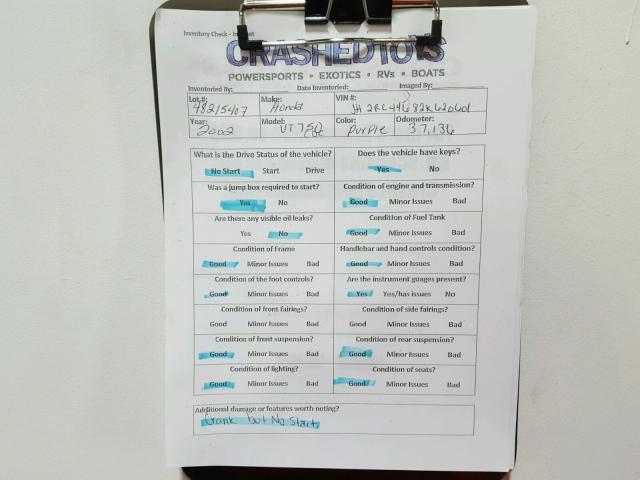 Inventory Check - In
CRASHEDTOYS
POWERSPORTS • EXOTICS • RVs • BOATS
Inventoried By: Date Inventoried: Imaged By:
Lot #: 48215407 Make: Honda VIN #: JH2RC44682K620601
Year: 2002 Model: VT750 Color: Purple Odometer: 37,136
What is the Drive Status of the vehicle? Does the vehicle have keys?
No Start Start Drive Yes No
Was a jump box required to start? Condition of engine and transmission?
Yes No Good Minor Issues Bad
Are there any visible oil leaks? Condition of Fuel Tank
Yes No Good Minor Issues Bad
Condition of Frame Handlebar and hand controls condition?
Good Minor Issues Bad Good Minor Issues Bad
Condition of the foot controls? Are the instrument guages present?
Good Minor Issues Bad Yes Yes/has issues No
Condition of front fairings? Condition of side fairings?
Good Minor Issues Bad Good Minor Issues Bad
Condition of front suspension? Condition of rear suspension?
Good Minor Issues Bad Good Minor Issues Bad
Condition of lighting? Condition of seats?
Good Minor Issues Bad Good Minor Issues Bad
Additional damage or features worth noting?
Crank but No Start